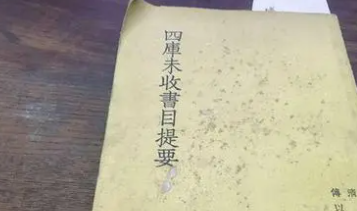 四庫未收書目提要